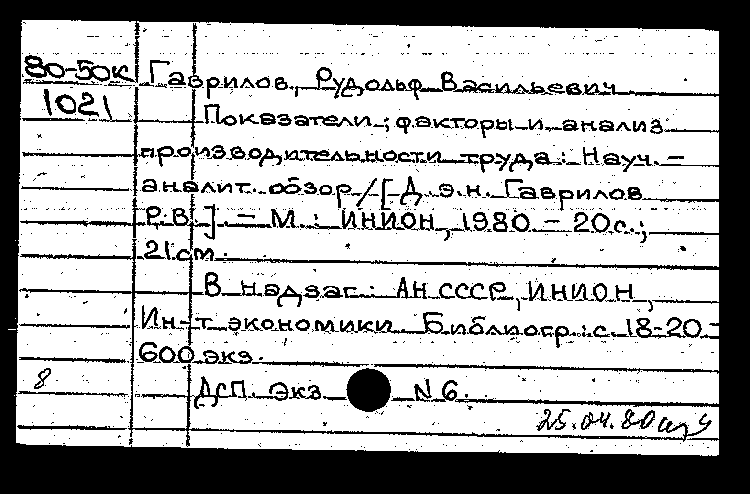 80-50к Гаврилов, Рудольф Васильевич
1021 Показатели, факторы и анализ
производительности труда: Науч.-
аналит. обзор /[Д.э.н. Гаврилов
Р.В.]. - М.: ИНИОН, 1980. - 20 с.;
21 см.
В надзаг.: АН СССР, ИНИОН,
Ин-т экономики. Библиогр.: с. 18-20.-
600 экз.
8 ДСП. Экз. N 6.
25.04.80